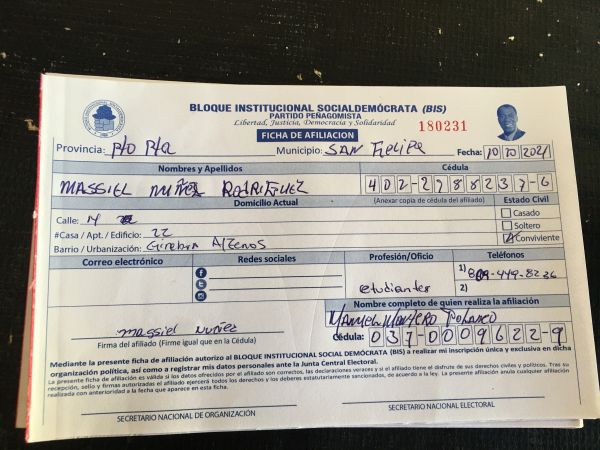 BLOQUE INSTITUCIONAL SOCIALDEMÓCRATA (BIS)
PARTIDO PEÑAGOMISTA
Libertad, Justicia, Democracia y Solidaridad
FICHA DE AFILIACION
180231
Provincia: Pto Pta Municipio: SAN Felipe Fecha: 10 10 2021
Nombres y Apellidos Cédula
MASSIEL NUÑEZ RODRIGUEZ 402-2788237-6
Domicilio Actual (Anexar copia de cédula del afiliado) Estado Civil
Calle: N 2 Casado
#Casa / Apt. / Edificio: 22 Soltero
Barrio / Urbanización: Conviviente
Correo electrónico Redes sociales Profesión/Oficio Teléfonos
1) 809-449-8236
estudiantes 2)
Nombre completo de quien realiza la afiliación
Massiel Nuñez MANUEL MONTERO POLANCO
Firma del afiliado (Firme igual que en la Cédula) Cédula: 037-0009622-9
Mediante la presente ficha de afiliación autorizo al BLOQUE INSTITUCIONAL SOCIAL DEMÓCRATA (BIS) a realizar mi inscripción única y exclusiva en dicha
organización política, así como a registrar mis datos personales ante la Junta Central Electoral.
La presente ficha de afiliación es válida si los datos por el afiliado son correctos, las declaraciones veraces y si el afiliado tiene el disfrute de sus derechos civiles y políticos. Tras su
recepción, sello y firmas autorizadas el afiliado ejercerá todos los derechos y los deberes estatutariamente sancionados, de acuerdo a la ley. La presente afiliación anula cualquier afiliación
realizada con anterioridad a la fecha que aparece en esta ficha.
SECRETARIO NACIONAL DE ORGANIZACIÓN SECRETARIO NACIONAL ELECTORAL